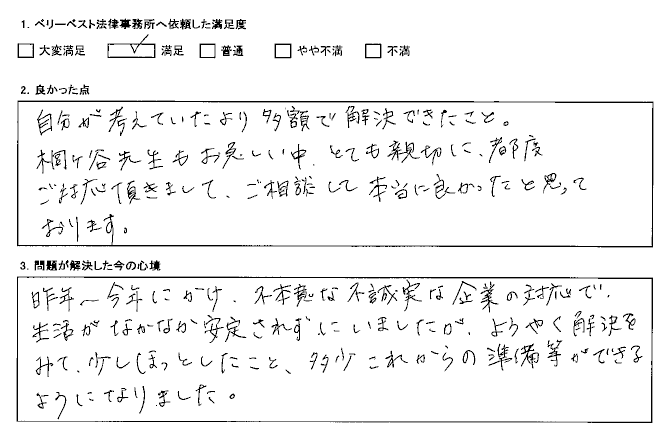 1. ベリーベスト法律事務所へ依頼した満足度
□ 大変満足 ☑ 満足 □ 普通 □ やや不満 □ 不満
2. 良かった点
自分が考えていたより多額で解決できたこと。
桐ヶ谷先生もお忙しい中、とても親切に、都度
ご対応頂きまして、ご相談して本当に良かったと思って
おります。
3. 問題が解決した今の心境
昨年~今年にかけ、不本意な不誠実な企業の対応で、
生活がなかなか安定されずにいましたが、ようやく解決を
みて、少しほっとしたこと、多少これからの準備等ができる
ようになりました。